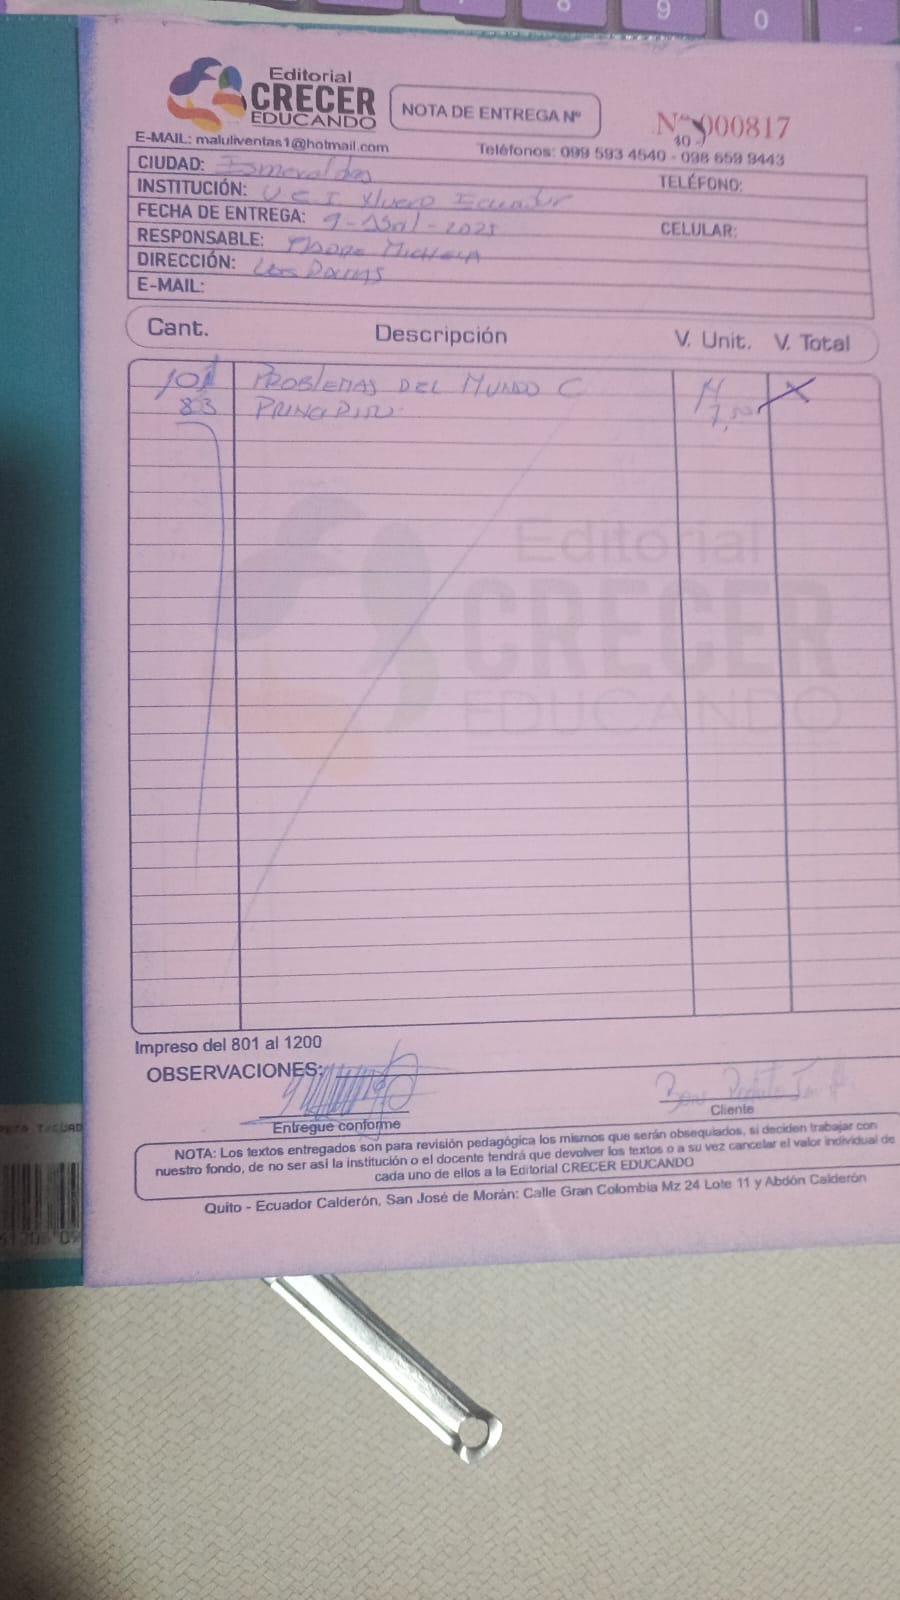 8 9 0 -
Editorial
CRECER
EDUCANDO
NOTA DE ENTREGA Nº
Nº 000817
E-MAIL: maluliventas1@hotmail.com
40
Teléfonos: 099 593 4540 - 098 659 9443
CIUDAD: Esmeraldas
TELÉFONO:
INSTITUCIÓN: U.E.I Ecuador
FECHA DE ENTREGA: 9-Abril-2025
CELULAR:
RESPONSABLE:
DIRECCIÓN: Los
E-MAIL:
Cant. Descripción V. Unit. V. Total
101 PROBLEMAS DEL MUNDO C
83 PRINCIPITO 7,50
Editorial
CRECER
EDUCANDO
Impreso del 801 al 1200
OBSERVACIONES:
Entregue conforme
Cliente
NOTA: Los textos entregados son para revisión pedagógica los mismos que serán obsequiados, si deciden trabajar con
nuestro fondo, de no ser así la institución o el docente tendrá que devolver los textos o a su vez cancelar el valor individual de
cada uno de ellos a la Editorial CRECER EDUCANDO
Quito - Ecuador Calderón, San José de Morán: Calle Gran Colombia Mz 24 Lote 11 y Abdón Calderón